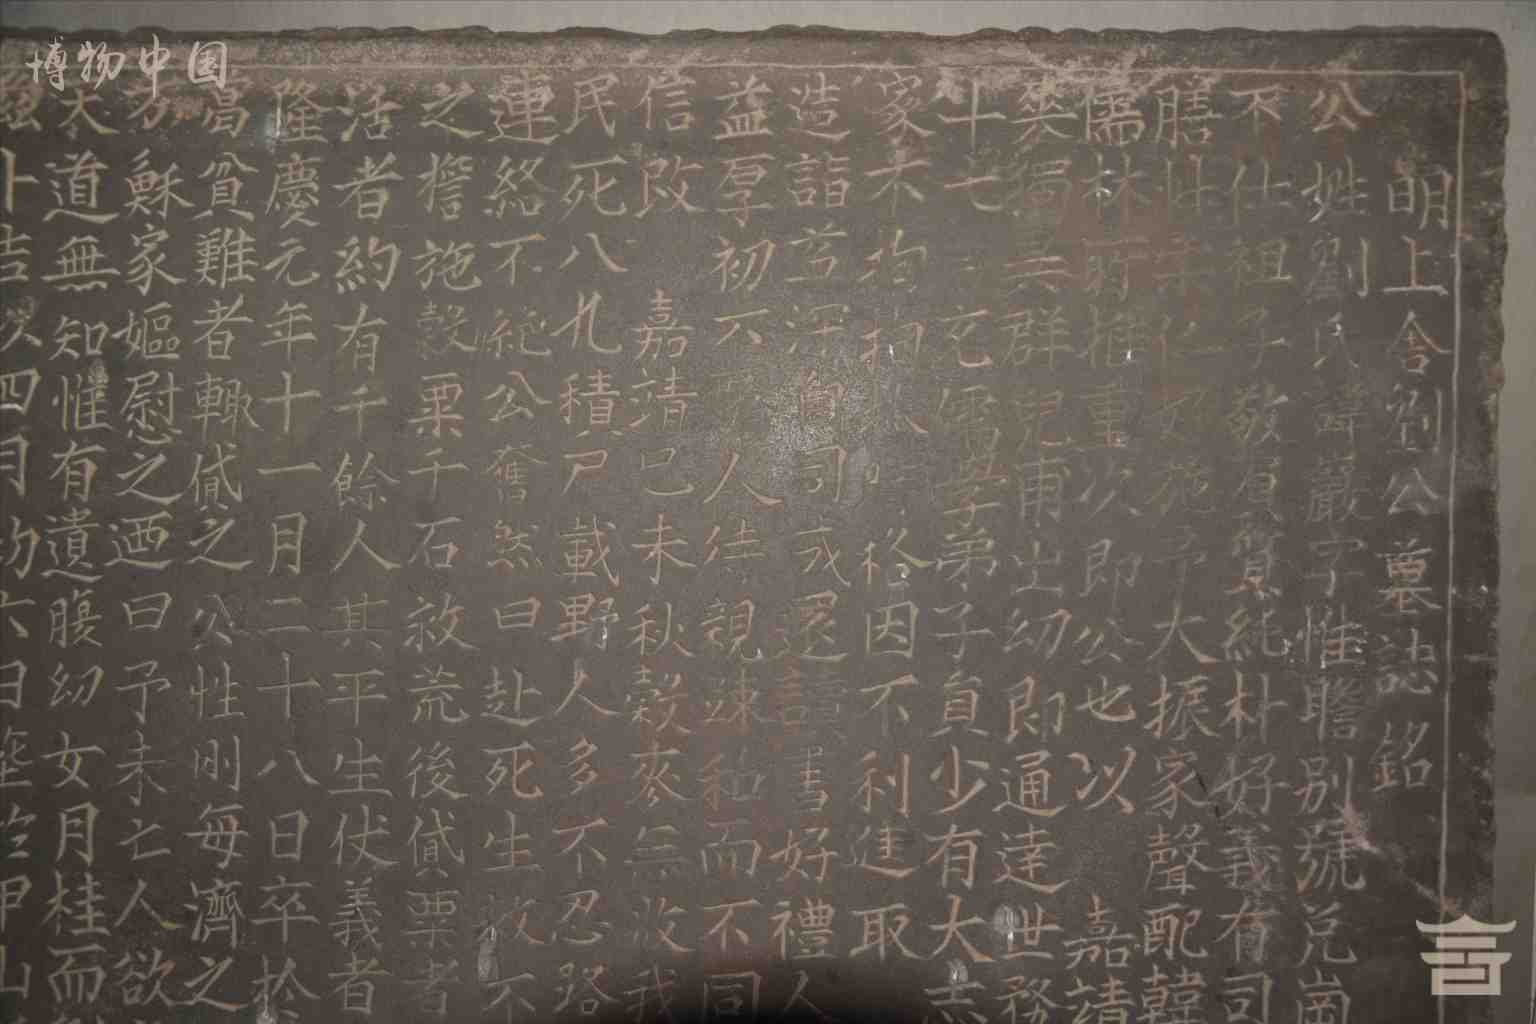 博物中国
明上舍劉公墓誌銘
公姓劉氏諱嚴字惟瞻別號兌崗
不仕祖子敬眉質純朴好義有司
膳性仁好施予大振家聲配韓
儒林所推重次即公也以嘉靖
獨六群兒甫出幼即通達世務
十七充儒學弟子員少有大志
家不拘格因不利進取
造詣益深有司或還讀書好禮人
益厚初人待親疎和而不同
信改嘉靖己未秋穀麥無收我
民死八九積尸載野人多不忍路
連絡不絕公奮然曰赴死生救不
之檐施穀粟千石救荒後貸粟者
活者約有千餘人其平生仗義者
隆慶元年十一月二十八日卒於
高貧難者輙貸之公性剛每濟之
蘇家嫗慰之廼曰予未亡人欲
天道無知惟有遺腹幼女月桂而
卜吉次四月初六日塟
言